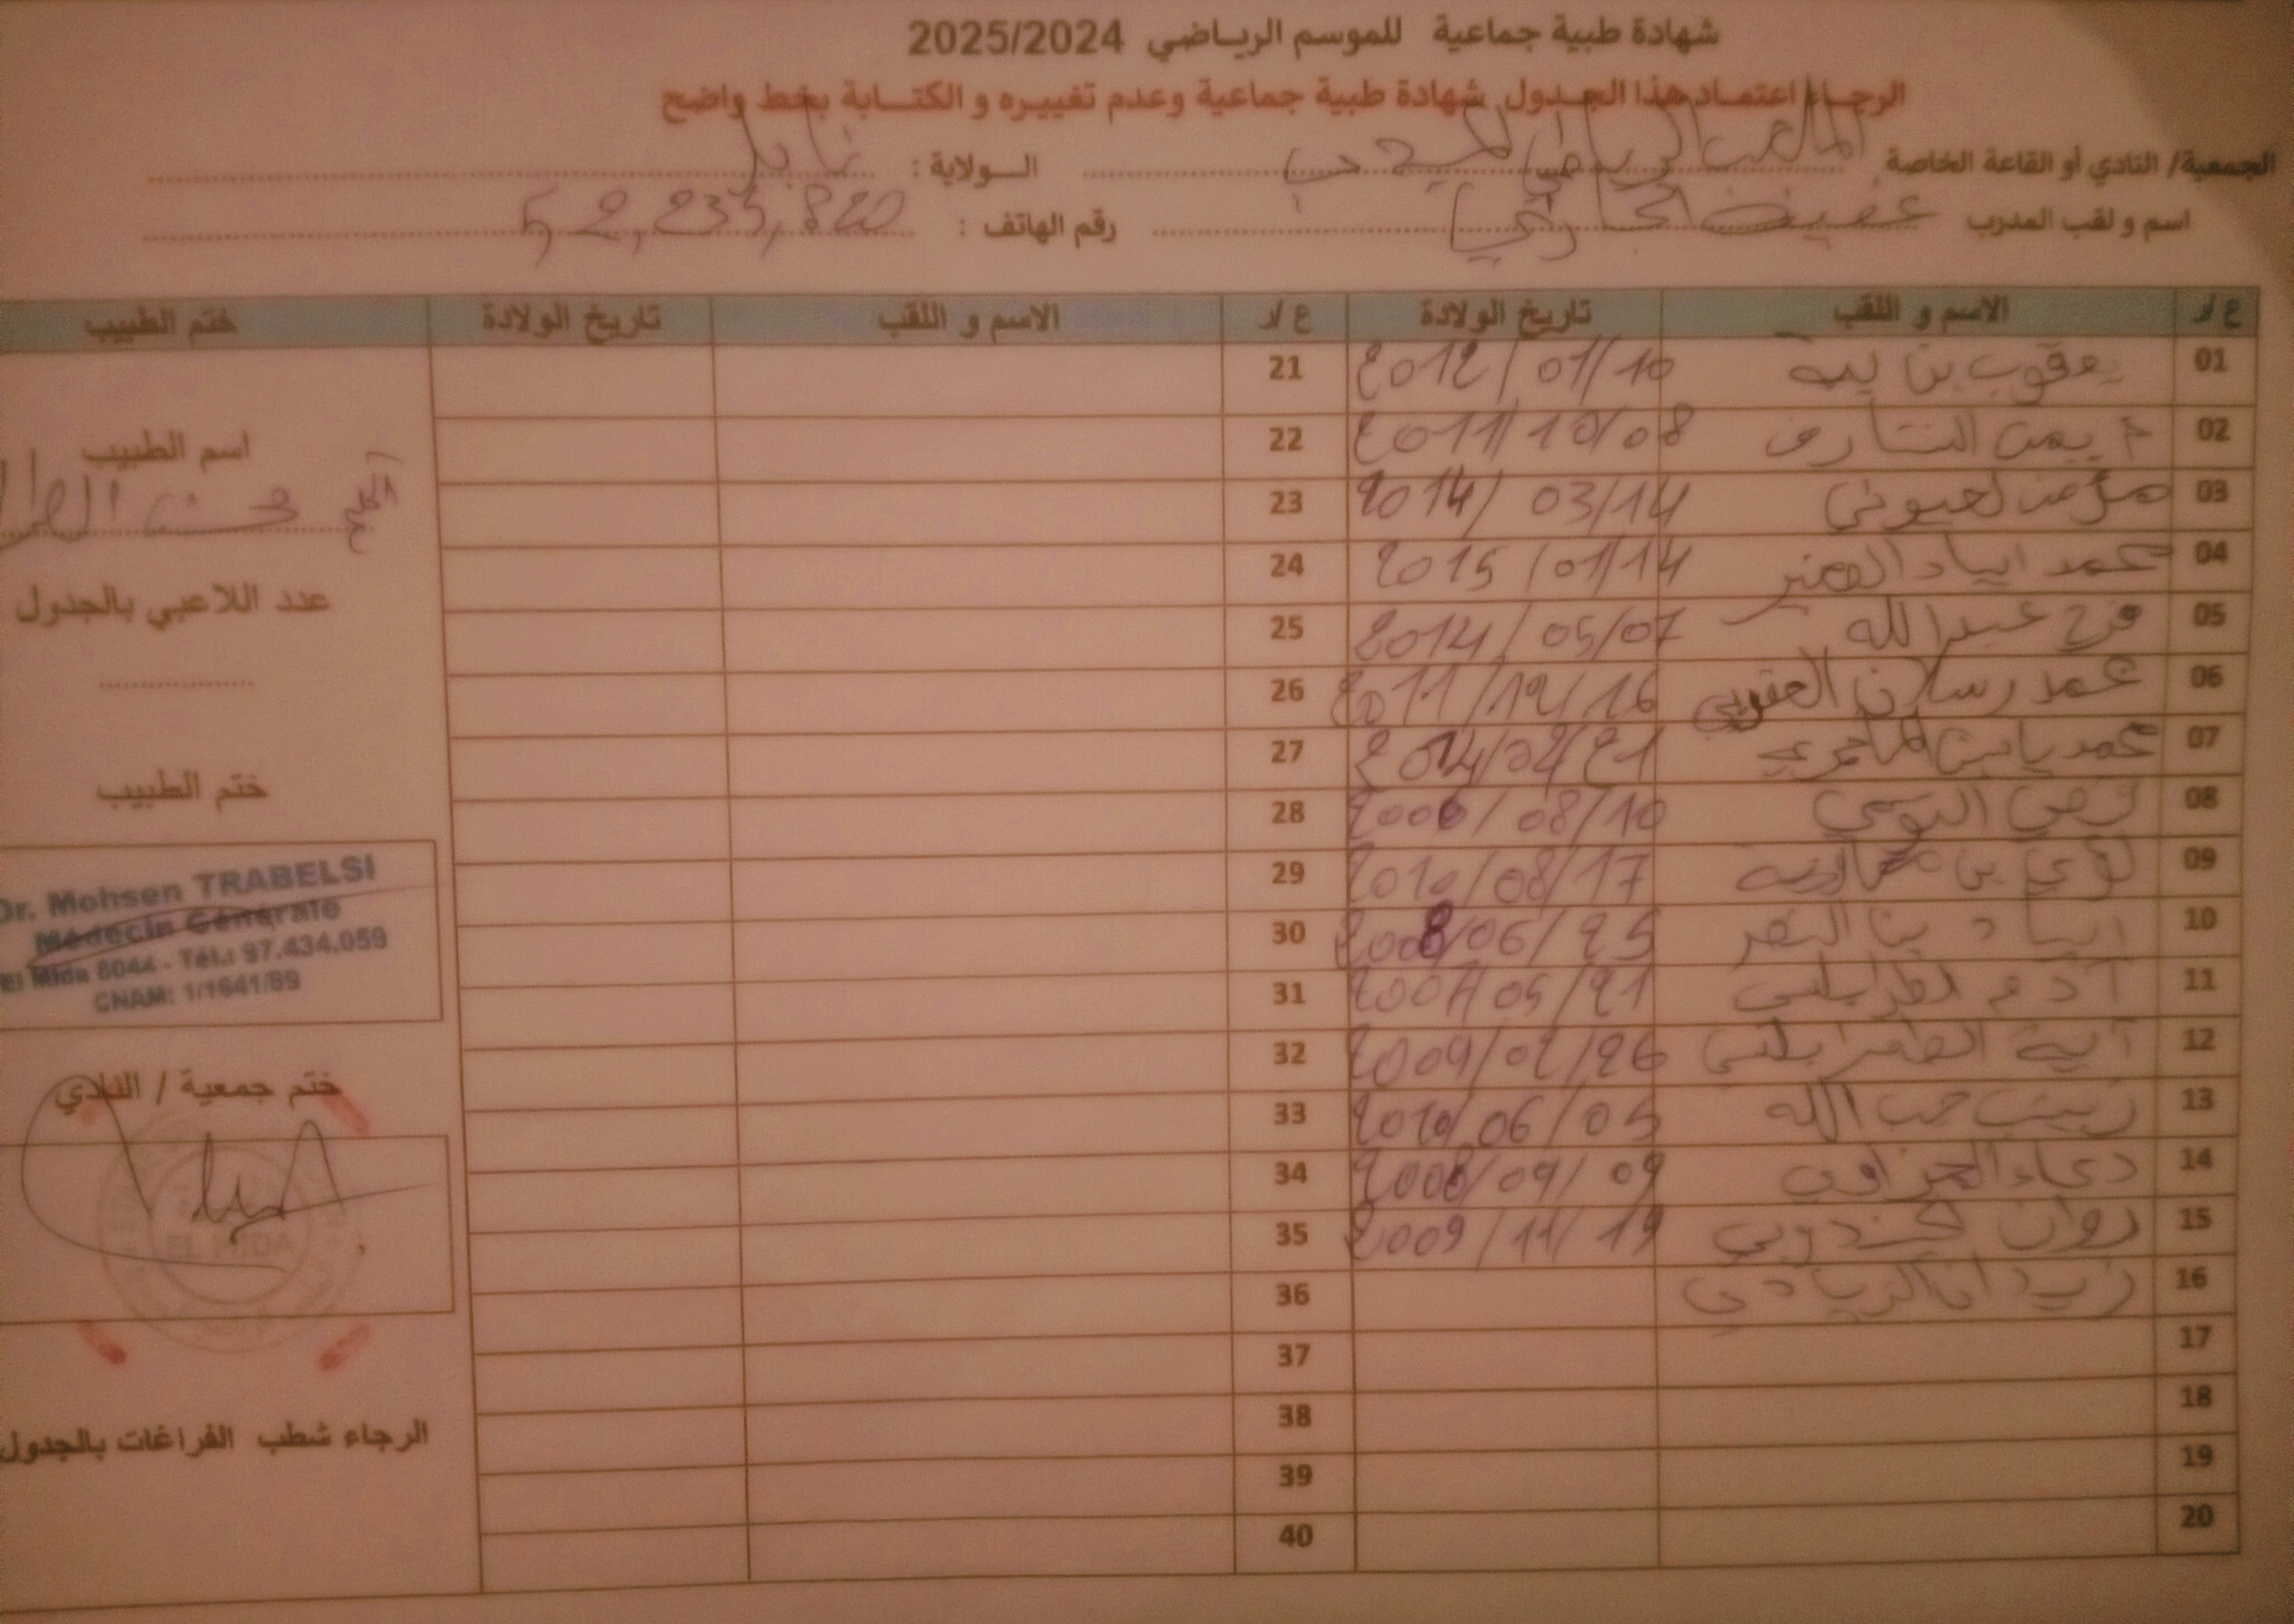 شهادة طبية جماعية للموسم الرياضي 2025/2024
الرجاء اعتماد هذا الجدول شهادة طبية جماعية وعدم تغييره و الكتابة بخط واضح
الجمعية/ النادي أو القاعة الخاصة الملعب الرياضي الولاية : نابل
اسم و لقب المدرب عفيف رقم الهاتف : 52,233,820
ع/ر الاسم و اللقب تاريخ الولادة ع/ر الاسم و اللقب تاريخ الولادة ختم الطبيب
01 يعقوب بن 2012/01/10 21
02 الشارف 2011/10/08 22
اسم الطبيب
03 مؤمن لعيوني 2014/03/14 23
04 محمد اياد 2015/01/14 24
عدد اللاعبي بالجدول
05 فرح عبد الله 2014/05/07 25
06 محمد رسلان العقوبي 2011/12/16 26
07 محمد ياسين 27
ختم الطبيب
08 2006/08/10 28
09 لؤي بن 2010/08/17 29
Dr. Mohsen TRABELSI
Médecin Générale
El Mida 8044 - Tél.: 97.434.059
CNAM: 1/1641/89
10 اياد بن 2008/06/25 30
11 آدم 31
12 آية الطرابلسي 2009/02/26 32
ختم جمعية / النادي
13 زينب حب الله 2010/06/05 33
14 دعاء 2008/09/09 34
15 روان 2009/11/19 35
EL MIDA
16 36
17 37
18 38
الرجاء شطب الفراغات بالجدول
19 39
20 40